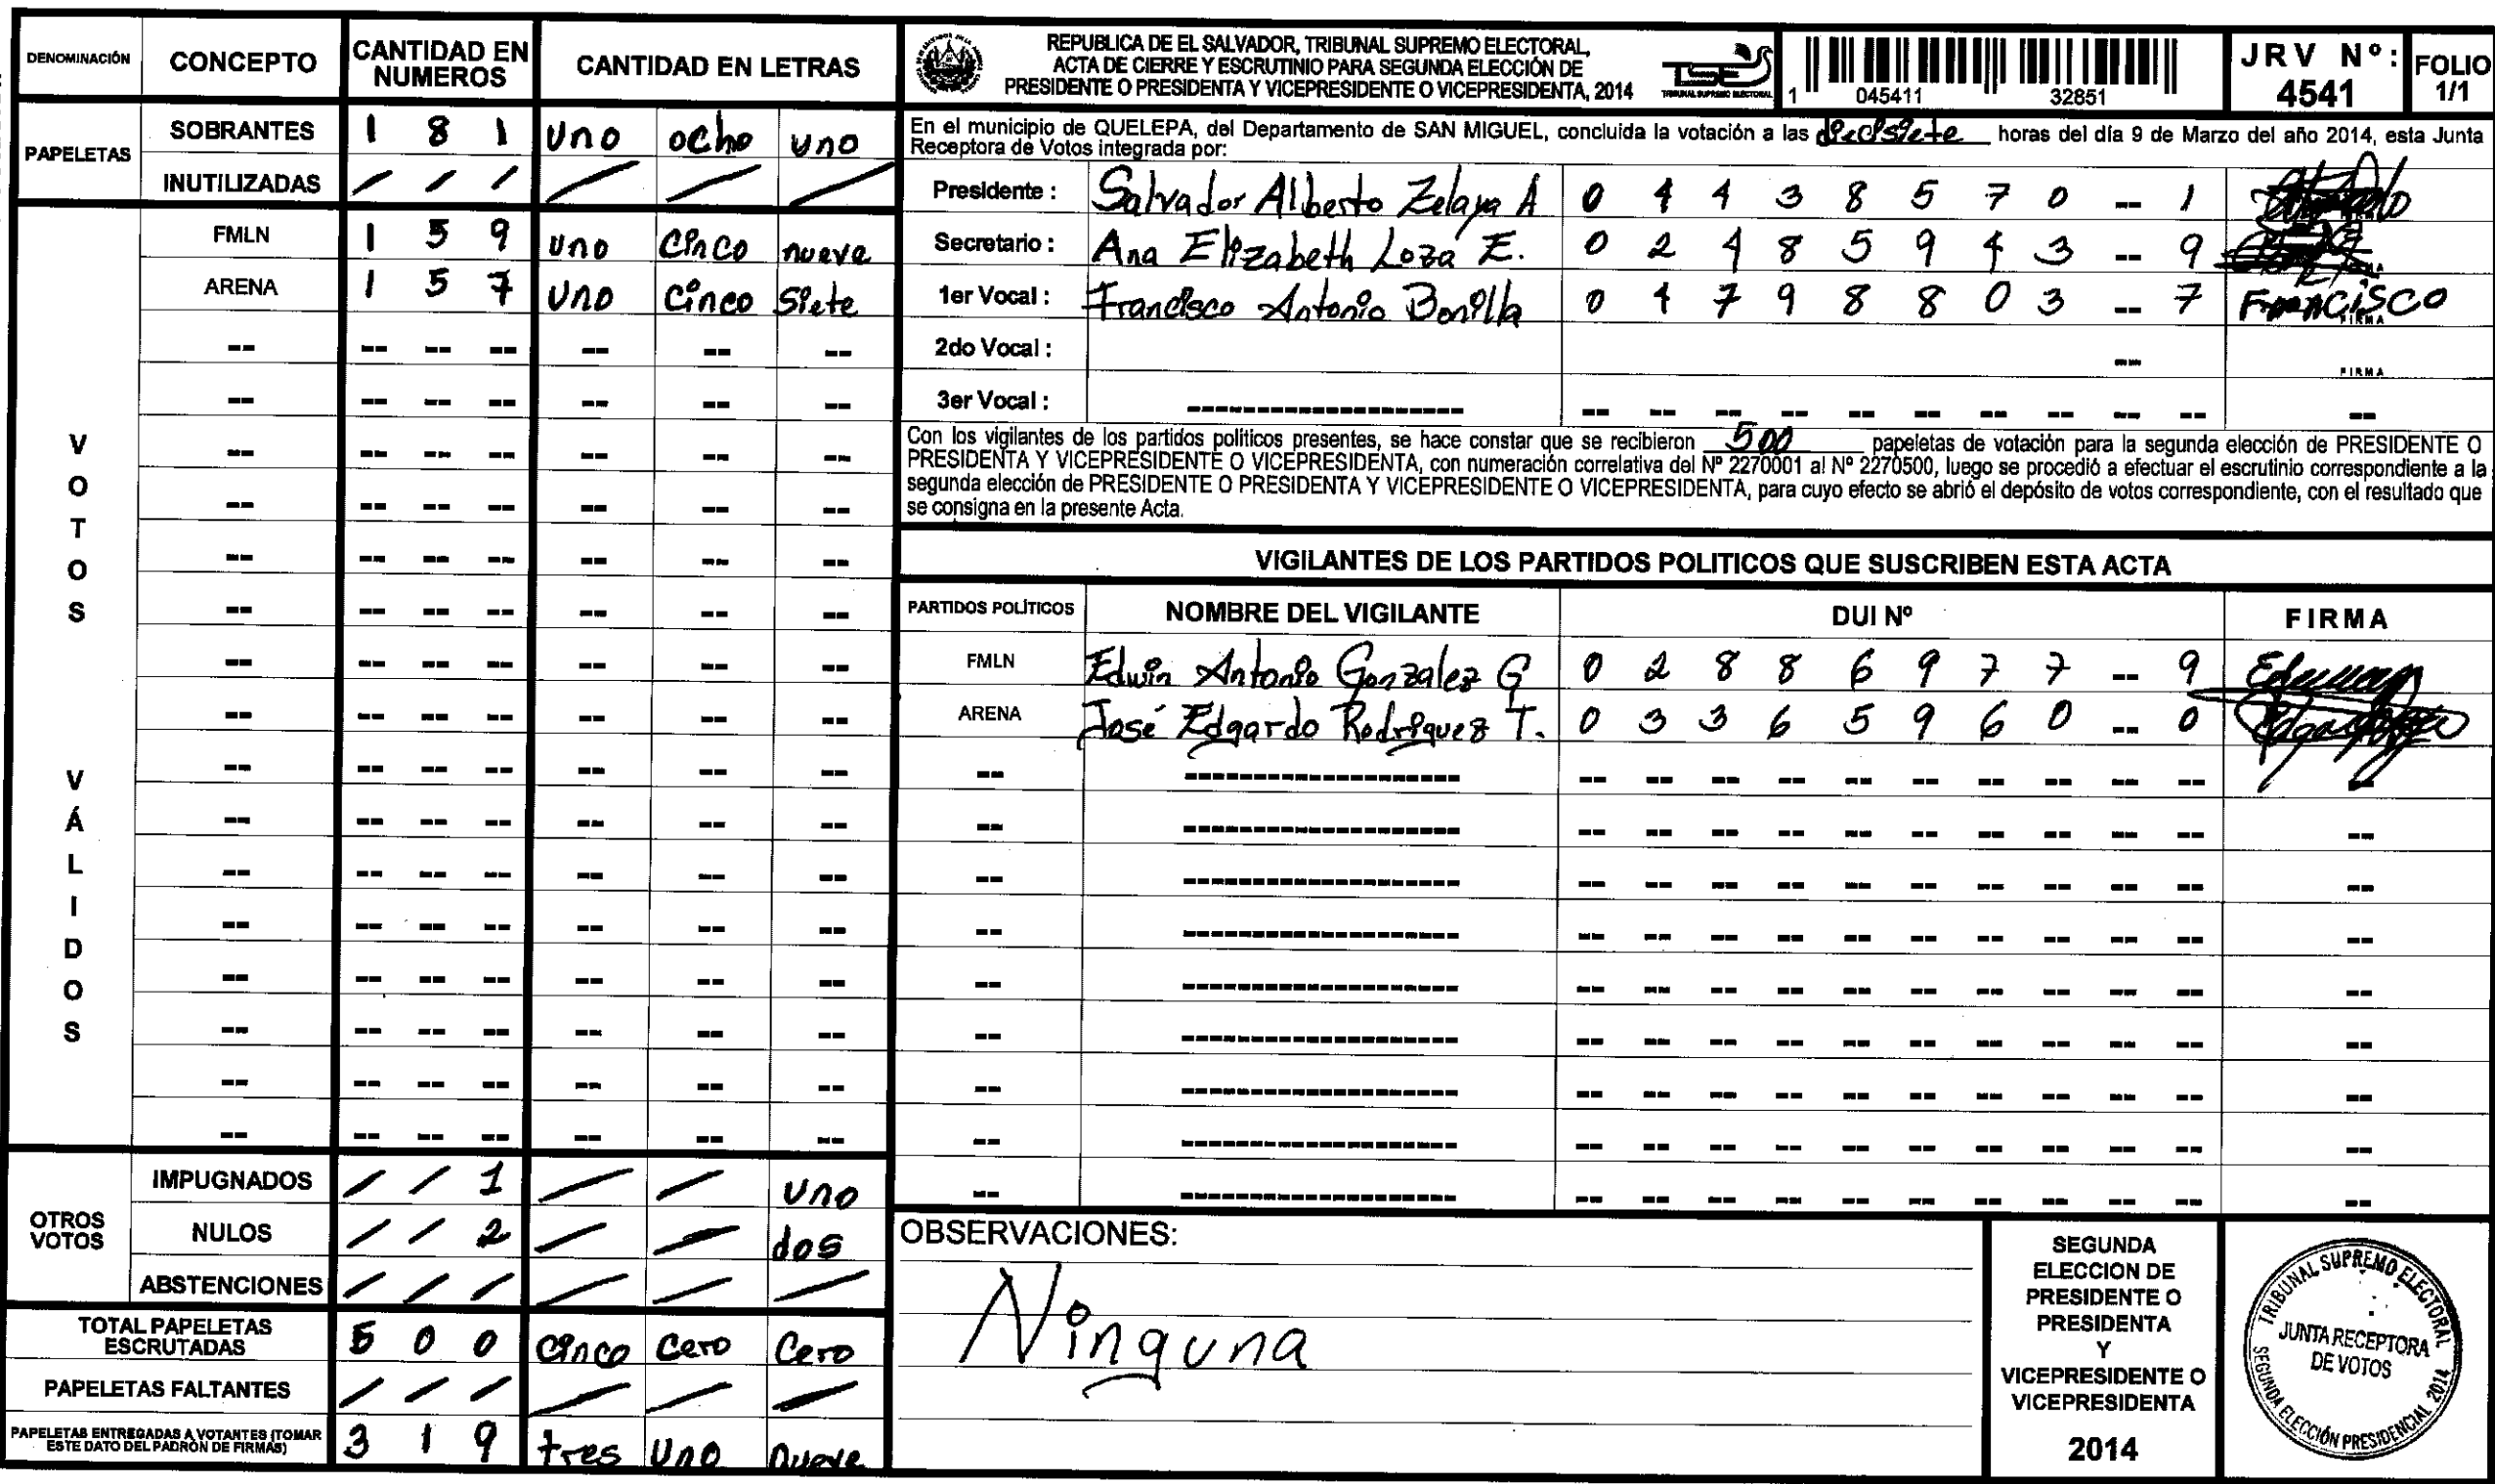 DENOMINACIÓN CONCEPTO CANTIDAD EN NUMEROS CANTIDAD EN LETRAS
PAPELETAS
SOBRANTES 1 8 1 uno ocho uno
INUTILIZADAS / / / / / /
VOTOS VÁLIDOS
FMLN 1 5 9 uno cinco nueve
ARENA 1 5 7 uno cinco siete
OTROS VOTOS
IMPUGNADOS / / 1 / / uno
NULOS / / 2 / / dos
ABSTENCIONES / / / / / /
TOTAL PAPELETAS ESCRUTADAS 5 0 0 cinco cero cero
PAPELETAS FALTANTES / / / / / /
PAPELETAS ENTREGADAS A VOTANTES (TOMAR ESTE DATO DEL PADRÓN DE FIRMAS) 3 1 9 tres uno nueve
REPUBLICA DE EL SALVADOR, TRIBUNAL SUPREMO ELECTORAL,
ACTA DE CIERRE Y ESCRUTINIO PARA SEGUNDA ELECCIÓN DE
PRESIDENTE O PRESIDENTA Y VICEPRESIDENTE O VICEPRESIDENTA, 2014
TSE
TRIBUNAL SUPREMO ELECTORAL
1 045411 32851
JRV Nº: 4541
FOLIO 1/1
En el municipio de QUELEPA, del Departamento de SAN MIGUEL, concluida la votación a las diecisiete horas del día 9 de Marzo del año 2014, esta Junta
Receptora de Votos integrada por:
Presidente : Salvador Alberto Zelaya A 0 4 4 3 8 5 7 0 -- 1
Secretario : Ana Elizabeth Loza E. 0 2 4 8 5 9 4 3 -- 9
1er Vocal : Francisco Antonio Bonilla 0 4 7 9 8 8 0 3 -- 7 Francisco FIRMA
2do Vocal : -- FIRMA
3er Vocal :
Con los vigilantes de los partidos políticos presentes, se hace constar que se recibieron 500 papeletas de votación para la segunda elección de PRESIDENTE O
PRESIDENTA Y VICEPRESIDENTE O VICEPRESIDENTA, con numeración correlativa del Nº 2270001 al Nº 2270500, luego se procedió a efectuar el escrutinio correspondiente a la
segunda elección de PRESIDENTE O PRESIDENTA Y VICEPRESIDENTE O VICEPRESIDENTA, para cuyo efecto se abrió el depósito de votos correspondiente, con el resultado que
se consigna en la presente Acta.
VIGILANTES DE LOS PARTIDOS POLITICOS QUE SUSCRIBEN ESTA ACTA
PARTIDOS POLÍTICOS NOMBRE DEL VIGILANTE DUI Nº FIRMA
FMLN Edwin Antonio Gonzalez G 0 2 8 8 6 9 7 7 -- 9
ARENA José Edgardo Rodriguez T. 0 3 3 6 5 9 6 0 -- 0
OBSERVACIONES:
Ninguna
SEGUNDA
ELECCION DE
PRESIDENTE O
PRESIDENTA
Y
VICEPRESIDENTE O
VICEPRESIDENTA
2014
TRIBUNAL SUPREMO ELECTORAL
JUNTA RECEPTORA
DE VOTOS
SEGUNDA ELECCIÓN PRESIDENCIAL 2014